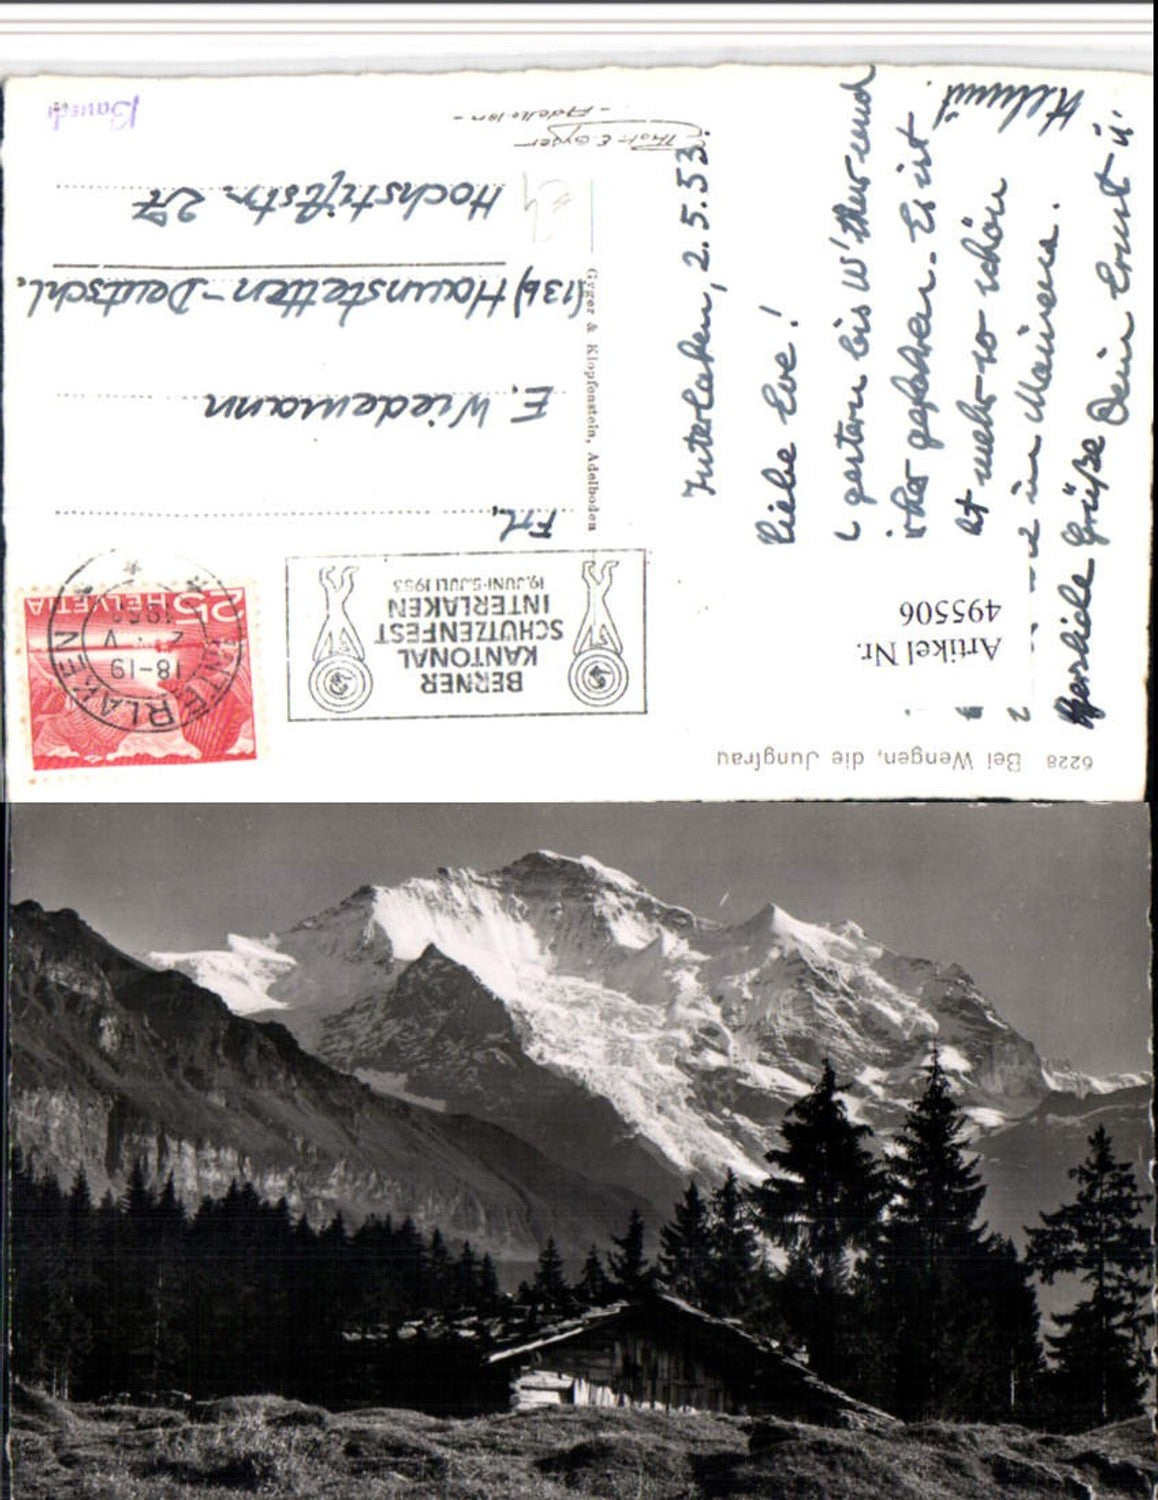 6228 Bei Wengen, die Jungfrau
Interlaken, 2.5.53.
Liebe Eve!
gestern bis W'thur und
gefahren. Es ist
mehr so schön
in Mainau.
Herzliche Grüße Dein Ernst u.
Helmut.
Artikel Nr.
495506
BERNER
KANTONAL
SCHÜTZENFEST
INTERLAKEN
19.JUNI-5.JULI 1953
INTERLAKEN
18-19
2. V
1953
HELVETIA
25
Frl.
E. Wiedemann
(13b) Haunstetten-Deutschl.
Hochstiftstr. 27
Gyger & Klopfenstein, Adelboden
Phot. E. Gyger
- Adelboden -